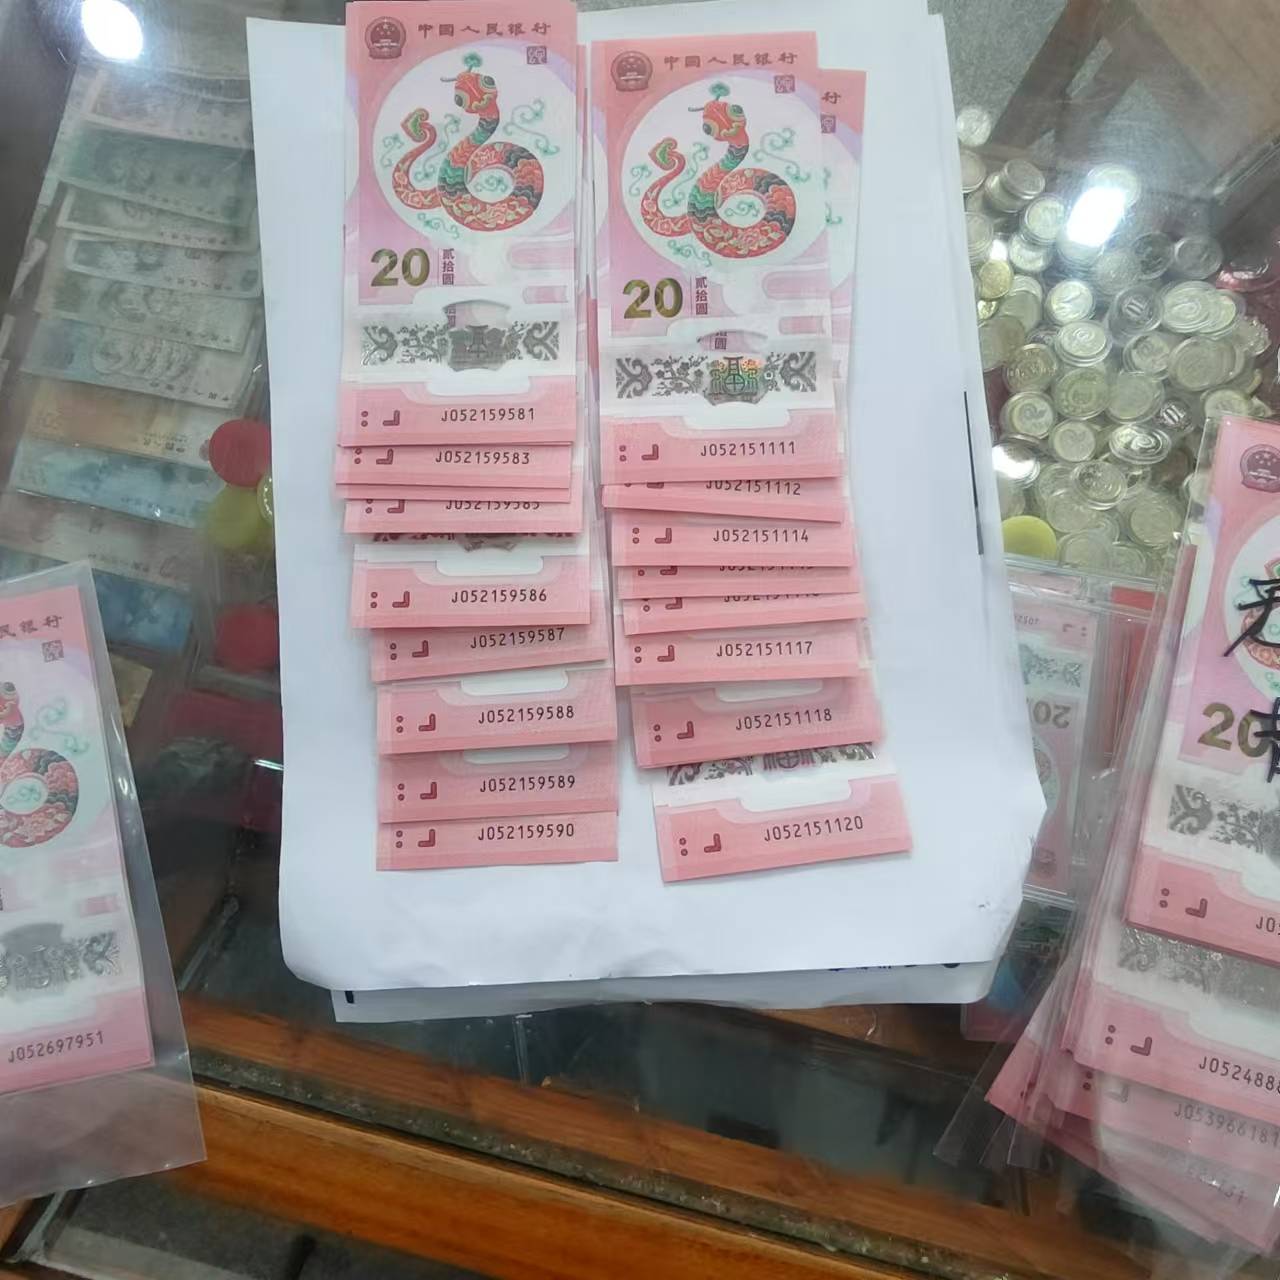 中國人民银行
20
贰拾圆
J052159581
J052159583
J052159585
J052159586
J052159587
J052159588
J052159589
J052159590
中國人民银行
行
20
贰拾圆
J052151111
J052151112
J052151114
J052151117
J052151118
J052151120
民银行
J052697951
20
J05
J052488
J0539661